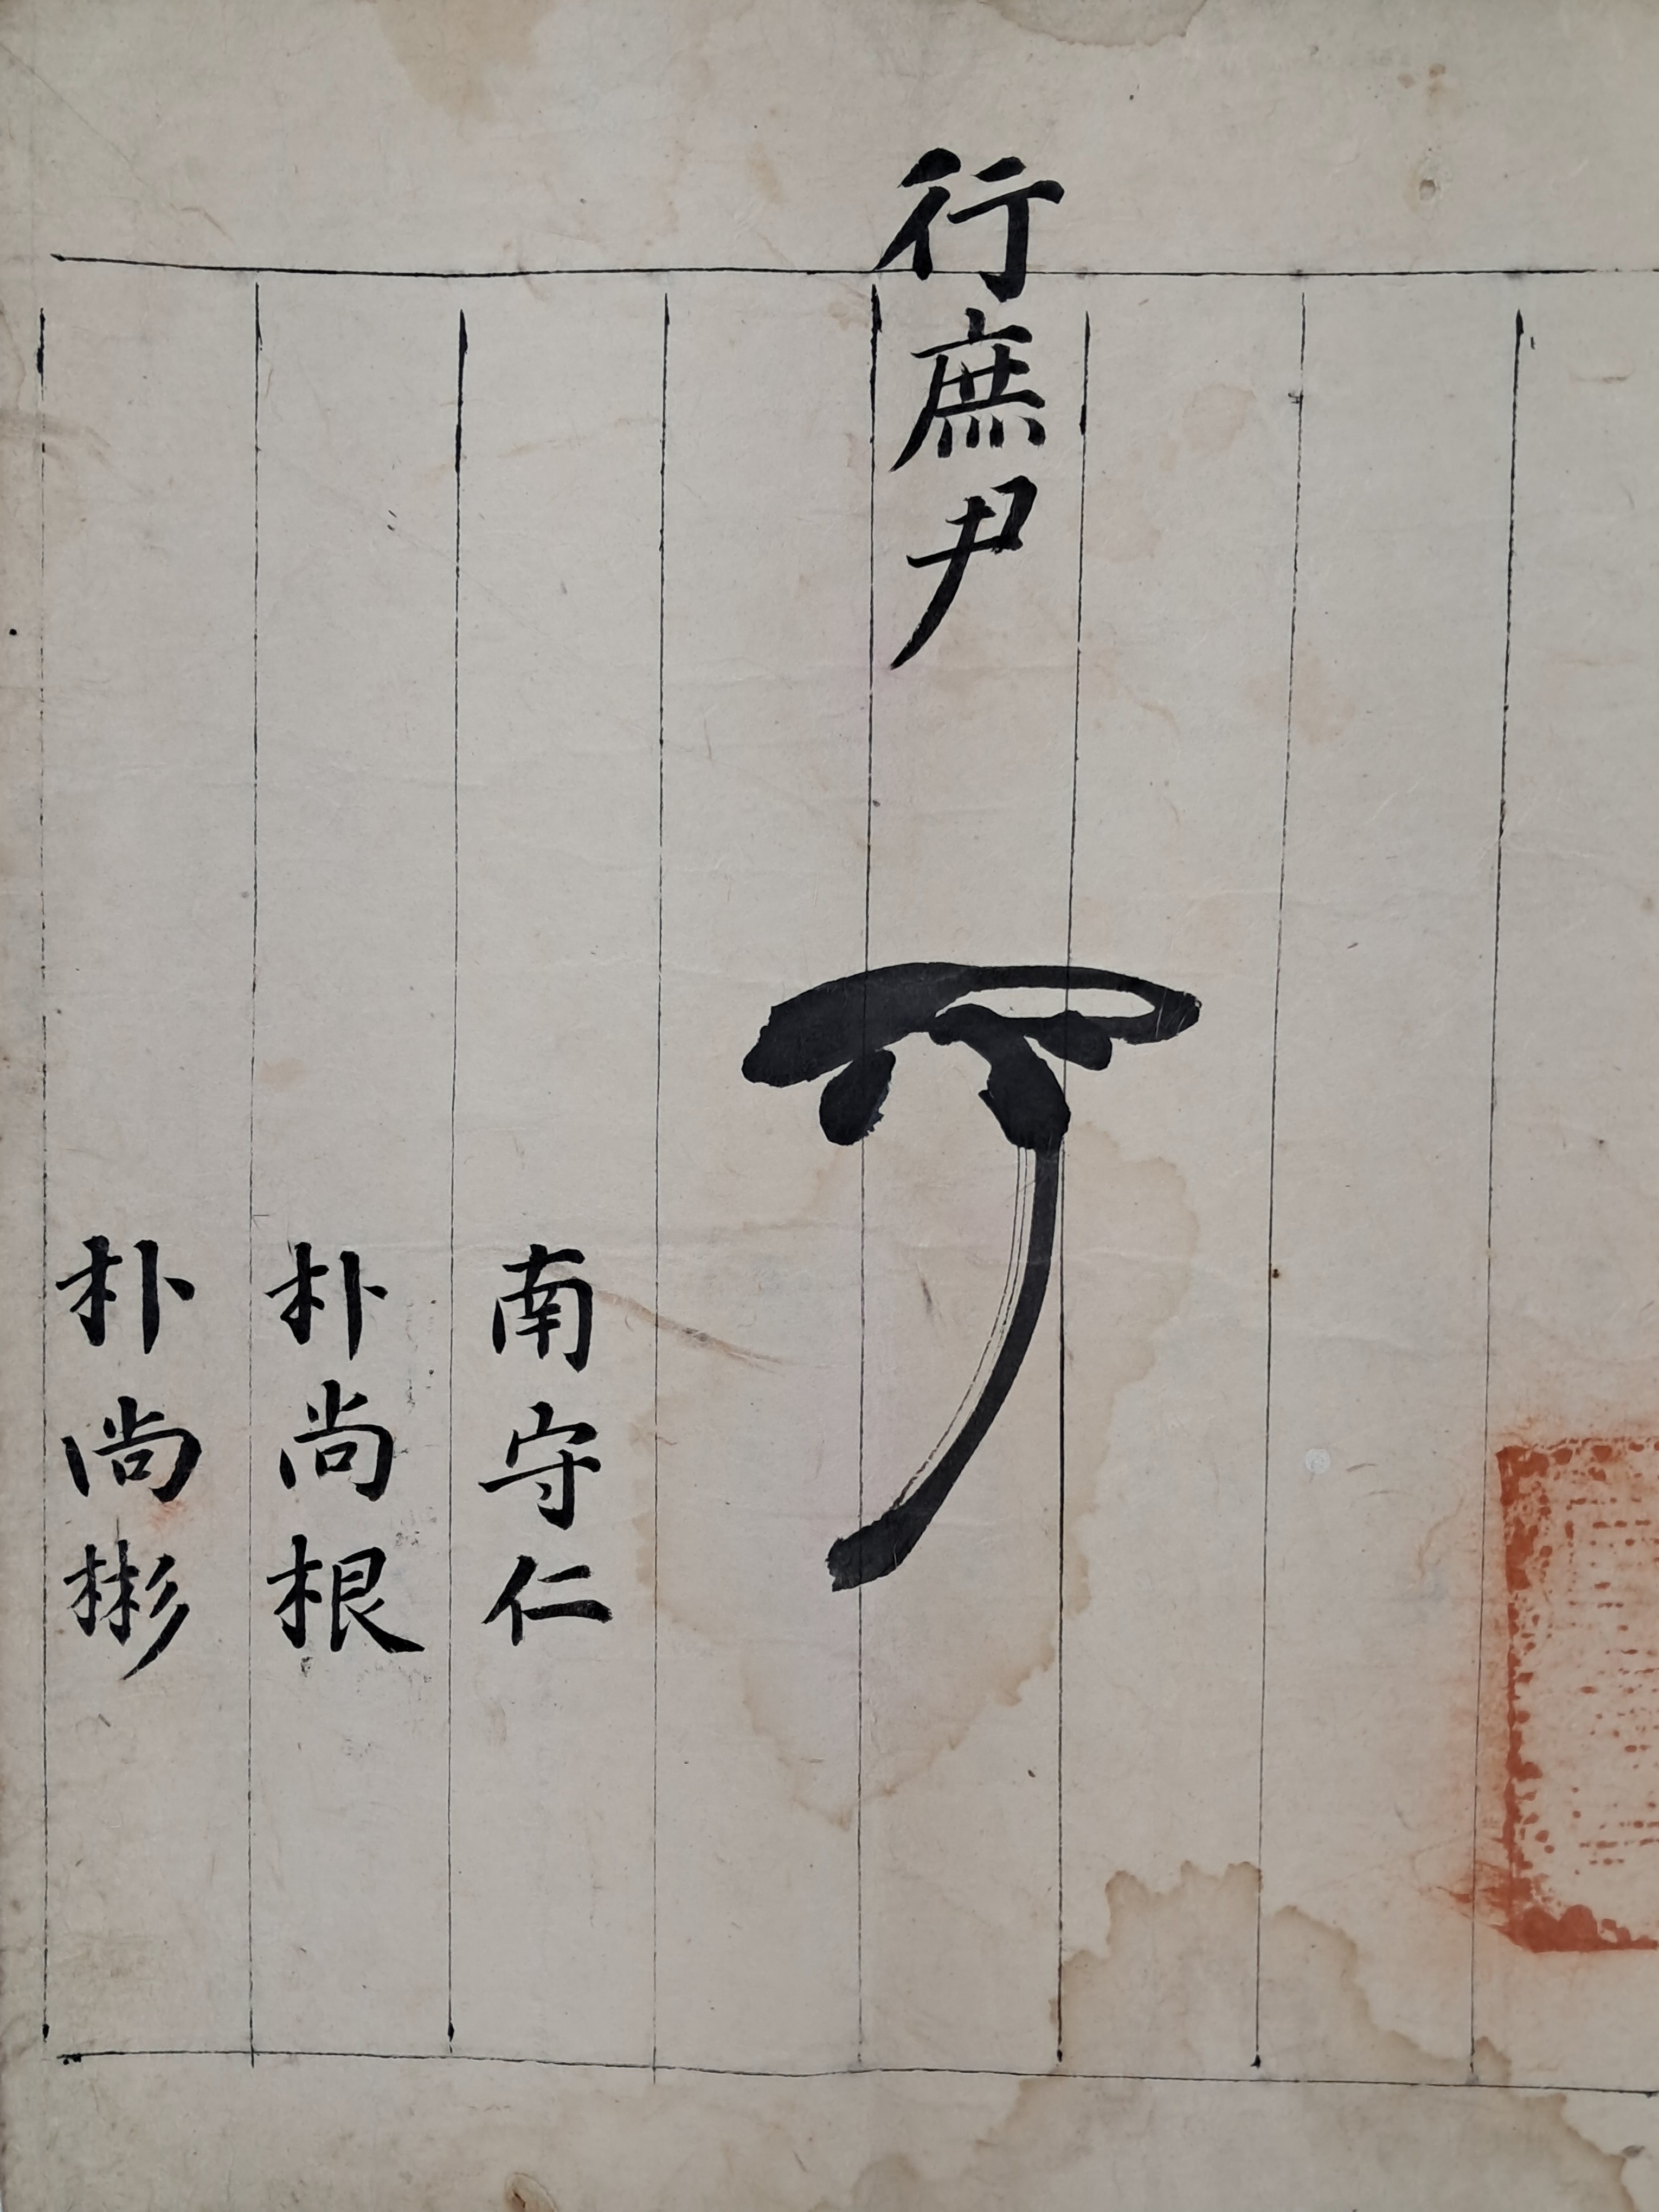 行庶尹
南守仁
朴尚根
朴尚彬